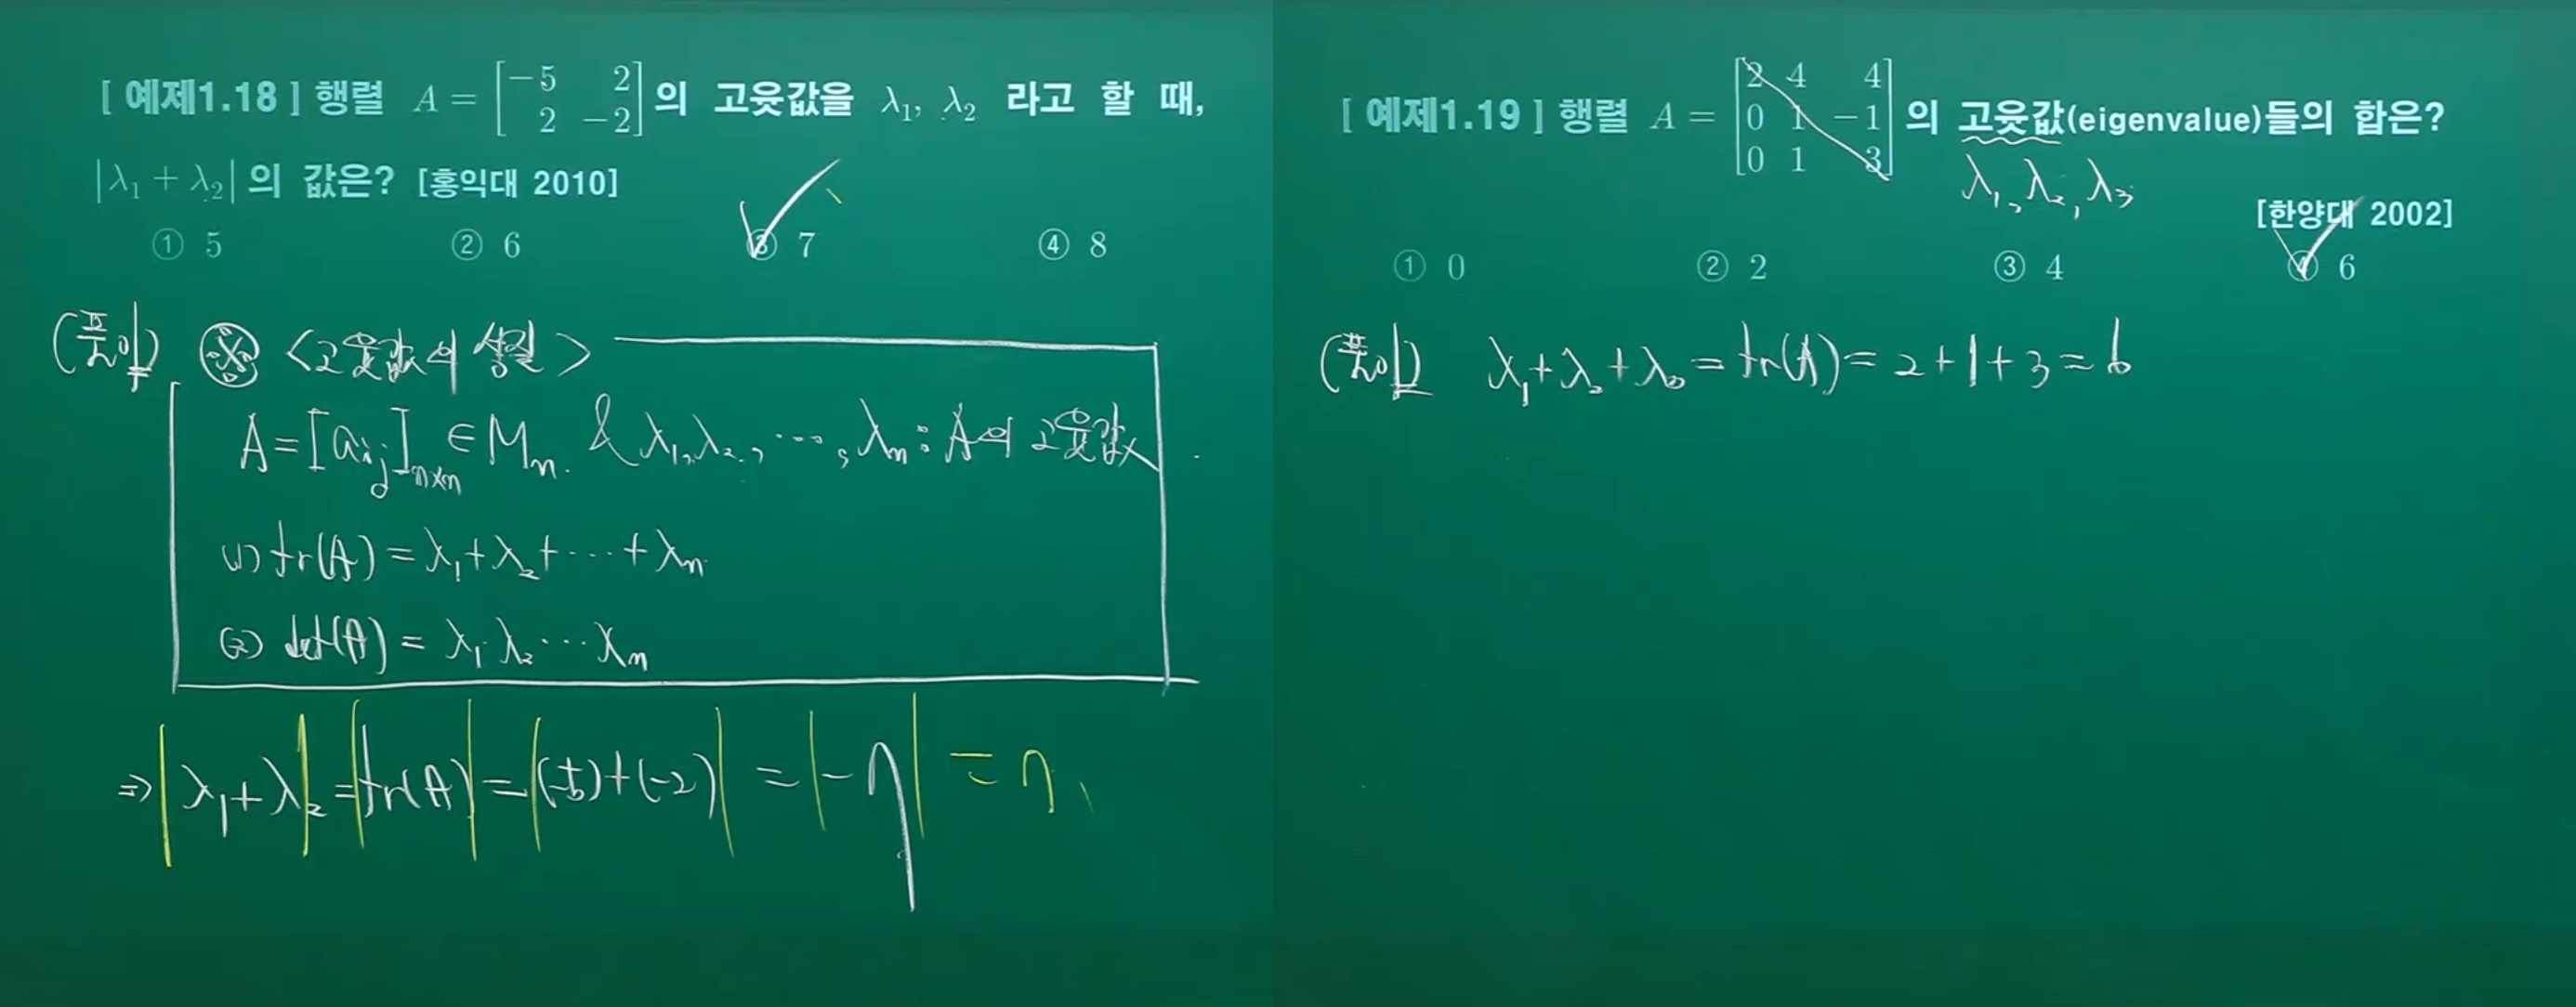 [ 예제1.18 ] 행렬 A = [−5 2; 2 −2] 의 고윳값을 λ₁, λ₂ 라고 할 때,
|λ₁ + λ₂| 의 값은? [홍익대 2010]
① 5 ② 6 ③ 7 ④ 8
(풀이) ※ <고윳값의 성질>
A = [aᵢⱼ]ₙₓₙ ∈ Mₙ. & λ₁, λ₂, ⋯, λₙ : A의 고윳값
(1) tr(A) = λ₁ + λ₂ + ⋯ + λₙ
(2) det(A) = λ₁ · λ₂ ⋯ λₙ
⇒ |λ₁ + λ₂| = |tr(A)| = |(−5) + (−2)| = |−7| = 7.
[ 예제1.19 ] 행렬 A = [2 4 4; 0 1 −1; 0 1 3] 의 고윳값(eigenvalue)들의 합은?
λ₁, λ₂, λ₃
[한양대 2002]
① 0 ② 2 ③ 4 ④ 6
(풀이) λ₁ + λ₂ + λ₃ = tr(A) = 2 + 1 + 3 = 6